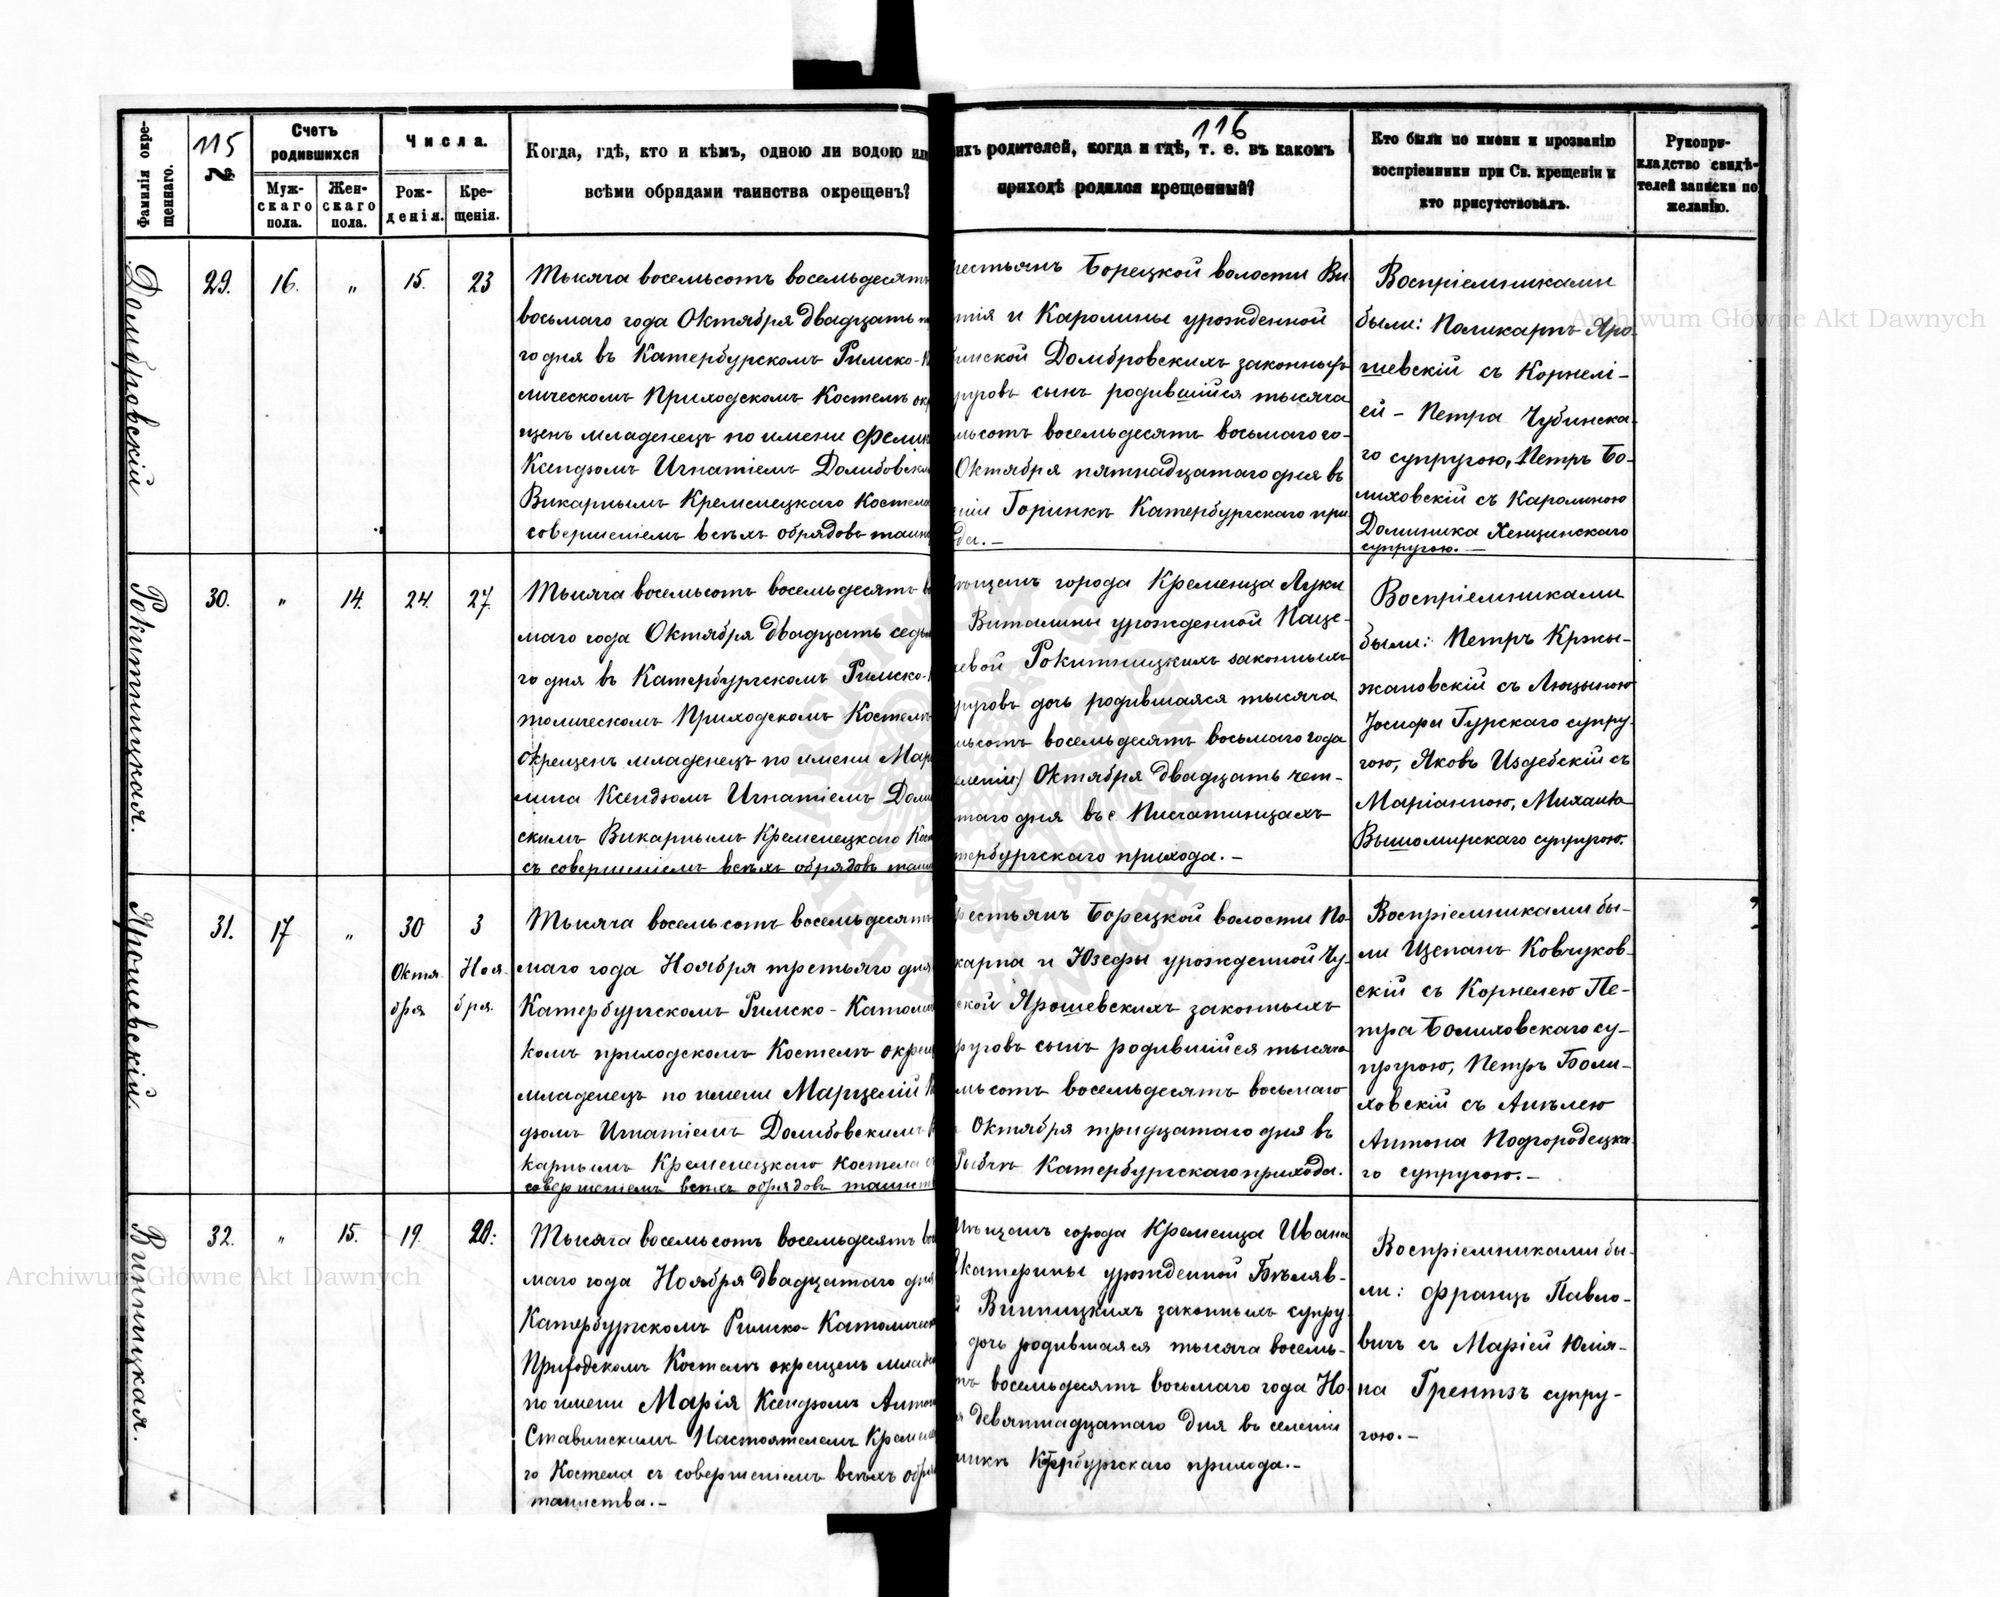 115
116
Фамилія окре-
щеннаго.
№
Счетъ
родившихся
Муж-
скаго
пола.
Жен-
скаго
пола.
Числа.
Рож-
денія.
Кре-
щенія.
Когда, гдѣ, кто и кѣмъ, одною ли водою или
всѣми обрядами таинства окрещенъ?
ихъ родителей, когда и гдѣ, т. е. въ какомъ
приходѣ родился крещенный?
Кто были по имени и прозванію
воспріемники при Св. крещеніи и
кто присутствовалъ.
Рукопри-
кладство свидѣ-
телей записки по
желанію.
Домбровскій
29. 16. " 15. 23
Тысяча восемьсотъ восемьдесятъ
восьмаго года Октября двадцать
го дня въ Катербургскомъ Римско-К
лическомъ Приходскомъ Костелѣ окр
щенъ младенецъ по имени Фелик
Ксендзомъ Игнатіемъ Долибовски
Викарнымъ Кременецкаго Костела
совершеніемъ всѣхъ обрядовъ таин
рестьянъ Борецкой волости Ви-
тія и Каролины урожденной
инской Домбровскихъ законныхъ
пруговъ сынъ родившійся тысяча
мьсотъ восемьдесятъ восьмаго го-
Октября пятнадцатаго дня въ
ніи Горинкѣ Катербургскаго при-
да.-
Воспріемниками
были: Поликарпъ Яро-
шевскій съ Корнелі-
ей - Петра Чубинска-
го супругою, Петръ Бо-
лиховскій съ Каролиною
Доминика Хенцинскаго
супругою.-
Рокитницкая.
30. " 14. 24. 27.
Тысяча восемьсотъ восемьдесятъ во
маго года Октября двадцать седьм
го дня въ Катербургскомъ Римско-
толическомъ Приходскомъ Костелѣ
окрещенъ младенецъ по имени Мар
лина Ксендзомъ Игнатіемъ Доли
скимъ Викарнымъ Кременецкаго Кос
съ совершеніемъ всѣхъ обрядовъ таин
ѣщанъ города Кременца Луки
Виталины урожденной Паце-
левой Рокитницкихъ законныхъ
пруговъ дочь родившаяся тысяча
мьсотъ восемьдесятъ восьмаго года
Октября двадцать чет-
таго дня въ с Писатинцахъ
тербургскаго прихода.-
Воспріемниками
были: Петръ Кржы-
жановскій съ Люцыною
Іосифа Гурскаго супру-
гою, Яковъ Издебскій съ
Маріанною, Михаила
Вышомирскаго супругою.
Ярошевскій.
31. 17 " 30 3
Октя- Ноя-
бря бря.
Тысяча восемьсотъ восемьдесятъ
маго года Ноября третьяго дня
Катербургскомъ Римско-Католи
комъ приходскомъ Костелѣ окрещ
младенецъ по имени Марцелій К
дзомъ Игнатіемъ Долибовскимъ В
карнымъ Кременецкаго костела съ
совершеніемъ всѣхъ обрядовъ таинст
рестьянъ Борецкой волости По-
карпа и Юзефы урожденной Чу-
ской Ярошевскихъ законныхъ
пруговъ сынъ родившійся тысяча
мьсотъ восемьдесятъ восьмаго
Октября тридцатаго дня въ
Рыбчѣ Катербургскаго прихода.
Воспріемниками бы-
ли Щепанъ Ковчуков-
скій съ Корнелею Пе-
тра Болиховскаго су-
пругою, Петръ Боли-
ховскій съ Анѣлею
Антона Подгородецка-
го супругою.-
Винницкая.
32. " 15. 19. 20.
Тысяча восемьсотъ восемьдесятъ вос
маго года Ноября двадцатаго дня
Катербургскомъ Римско-Католическ
Приходскомъ Костелѣ окрещенъ младе
по имени Марія Ксендзомъ Антон
Ставинскимъ Настоятелемъ Кремене
го Костела съ совершеніемъ всѣхъ обря
таинства.-
Мѣщанъ города Кременца Ивана
Екатерины урожденной Бѣляв-
Винницкихъ законныхъ супру-
дочь родившаяся тысяча восемь-
тъ восемьдесятъ восьмаго года Но-
я девятнадцатаго дня въ селеніи
инкѣ Катербургскаго прихода.-
Воспріемниками бы-
ли: Францъ Павло-
вичъ съ Маріей Юлія-
на Грентзъ супру-
гою.-
Archiwum Główne Akt Dawnych
Archiwum Główne Akt Dawnych